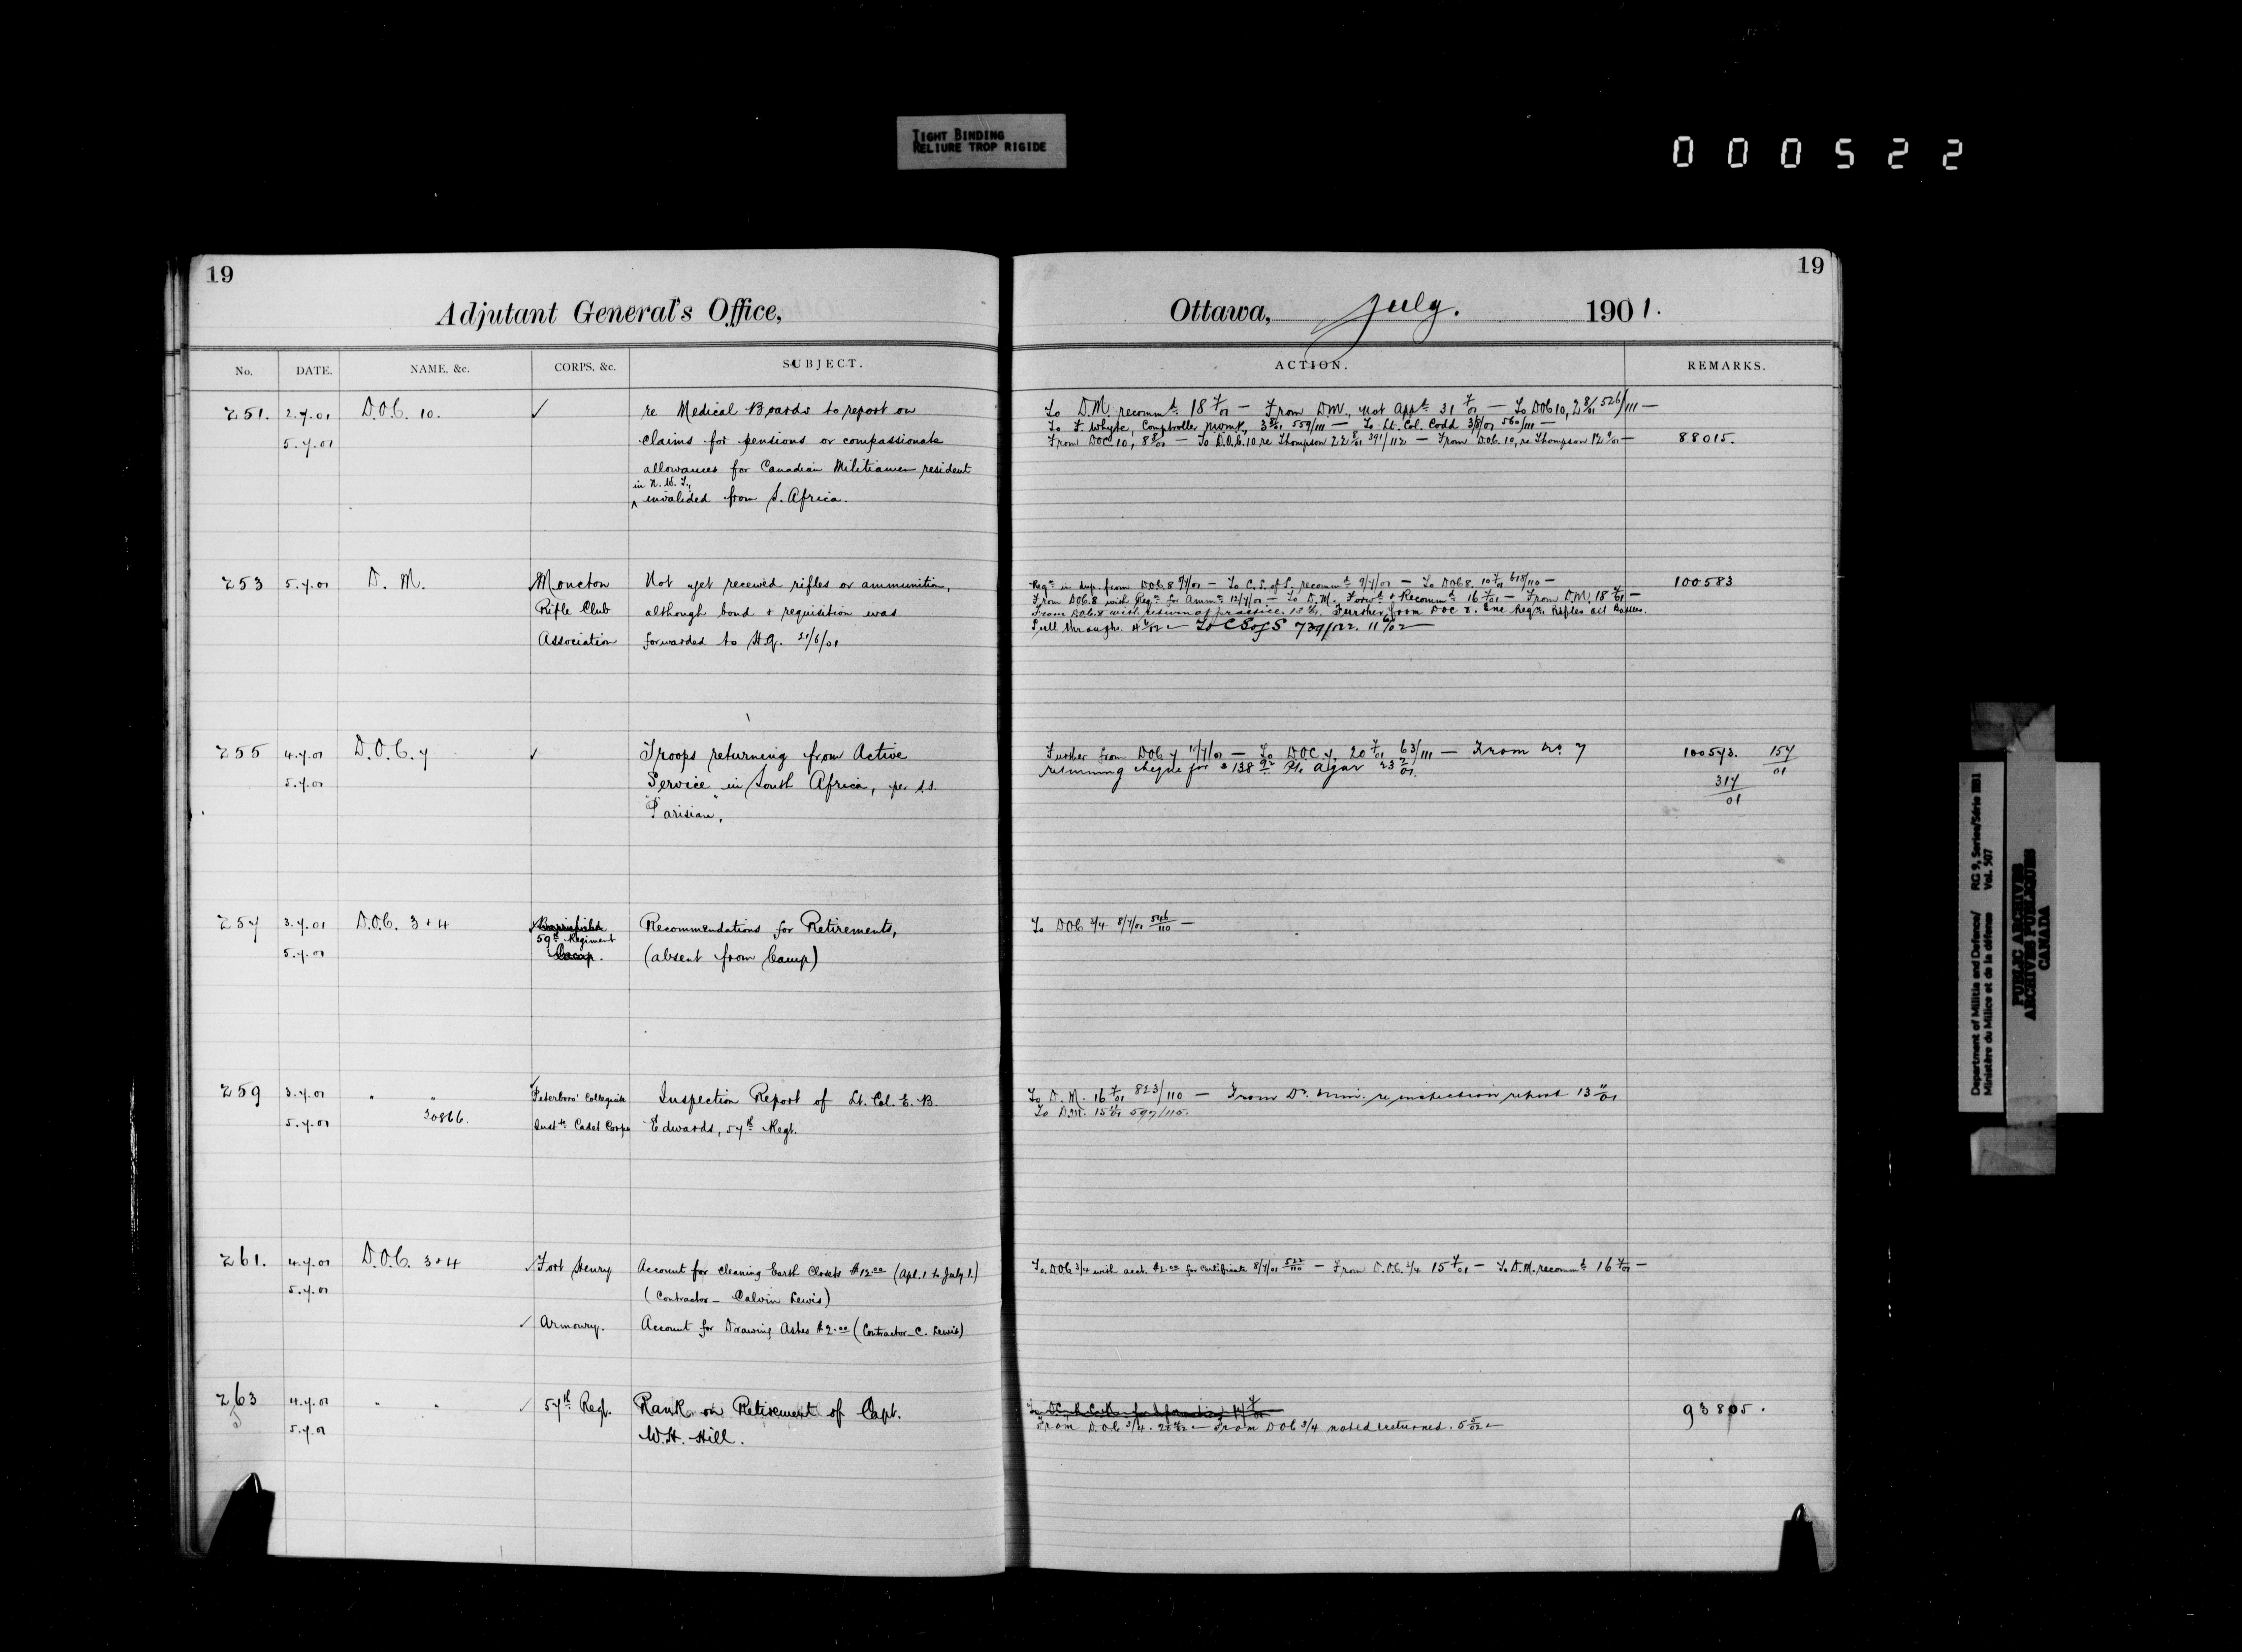 TIGHT BINDING
RELIURE TROP RIGIDE
000522
19
Adjutant General's Office,
No. DATE. NAME, &c. CORPS, &c. SUBJECT.
251. 2.7.01 D.O.C. 10. ✓ re Medical Boards to report on
5.7.01 claims for pensions or compassionate
allowances for Canadian Militiamen resident
in N.W.T.,
^ invalided from S. Africa.
253 5.7.01 D. M. ✓Moncton Not yet received rifles or ammunition,
Rifle Club although bond & requisition was
Association forwarded to H.Q. 21/6/01
255 4.7.01 D.O.C. 7 ✓ Troops returning from Active
5.7.01 Service in South Africa, per s.s.
"Parisian".
257 3.7.01 D.O.C. 3 + 4 Recommendations for Retirements,
59th Regiment
5.7.01 (absent from Camp)
259 3.7.01 " " ✓Peterboro' Collegiate Inspection Report of Lt. Col. E. B.
5.7.01 20866. Inste. Cadet Corps Edwards, 57th Regt.
261. 4.7.01 D.O.C. 3 + 4 ✓Fort Henry Account for cleaning Earth Closets $12.00 (Apl. 1 to July 1.)
5.7.01 (Contractor - Calvin Lewis)
✓ Armoury. Account for Drawing Ashes $2.00 (Contractor - C. Lewis)
263 4.7.01 " " ✓ 57th Regt. Rank on Retirement of Capt.
5.7.01 W.H. Hill.
19
Ottawa, July. 1901.
ACTION. REMARKS.
To D.M. recommd. 18 7/01 — From DM., not appd. 31 7/01 — To DOC 10, 2 8/01 526/111 —
To F. Whyte, Comptroller NWMP, 3 8/01 559/111 — To Lt. Col. Codd 3/8/01 560/111 —
From DOC. 10, 8 8/01 — To D.O.C. 10 re Thompson 22 8/01 391/112 — From D.O.C. 10, re Thompson 12 9/01 — 88015.
Reqn. in dup. from DOC. 8 9/7/01 — To C.S. of S. recommd. 9/7/01 — To DOC 8. 10 7/01 618/110 — 100583
From DOC. 8 with Reqn. for Ammn. 12/7/01 — To D.M. Forwd. & Recommd. 16 7/01 — From D.M. 18 7/01 —
Further from DOC 8.
Pull through. — To C S of S 739/122.
Further from DOC 7 11/7/01 — To DOC 7, 20 7/01 63/111 — From No. 7 100573. 157/01
returning cheque for $138 Pte. Agar 317/01
To DOC 3/4 8/7/01 546/110 —
To D. M. 16 7/01 823/110 — From re inspection report 13 11/01
To D.M. 15 11/01 597/115.
To DOC 3/4 with acct. $2.00 for certificate 8/7/01 — From D.O.C. 3/4 15 7/01 — To D.M. recommd. 16 7/01 —
93805.
From D.O.C. 3/4. — From DOC 3/4 noted & returned. 5 5/02
Department of Militia and Defence/ RG 9, Series/Série IIB1
Ministère du Milice et de la défense Vol. 507
PUBLIC ARCHIVES
ARCHIVES PUBLIQUES
CANADA